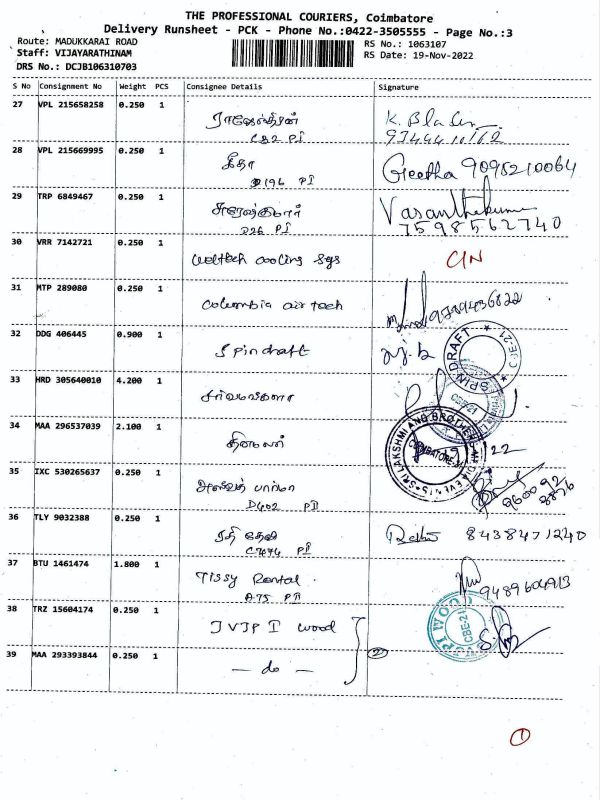 THE PROFESSIONAL COURIERS, Coimbatore
Delivery Runsheet - PCK - Phone No.:0422-3505555 - Page No.:3
Route: MADUKKARAI ROAD
RS No.: 1063107
Staff: VIJAYARATHINAM
RS Date: 19-Nov-2022
DRS No.: DCJB106310703
S No Consignment No Weight PCS Consignee Details Signature
27 VPL 215658258 0.250 1
28 VPL 215669995 0.250 1 கீதா Geetha 9095210064
D196 PI
29 TRP 6849467 0.250 1 Vasanthakumar
D26 PI 7598562740
30 VRR 7142721 0.250 1 Weltech cooling sys C/N
31 MTP 289080 0.250 1 Columbia air tech 9789436822
32 DDG 406445 0.900 1 Spindraft
SPIN DRAFT * CJE-21 *
33 HRD 305640010 4.200 1
34 MAA 296537039 2.100 1 தினமலர்
SRI LAKSHMI ANG BROTHER
COIMBATORE
35 IXC 530265637 0.250 1 பார்மா
D402 PII 960092
8876
36 TLY 9032388 0.250 1 ரதி தேவி 8438471240
PI
37 BTU 1461474 1.800 1 Tissy Rental 9489604913
A75 PII
38 TRZ 15604174 0.250 1 IVIP I wood
WOOD
CBE-21
39 MAA 293393844 0.250 1 - do - 2
1